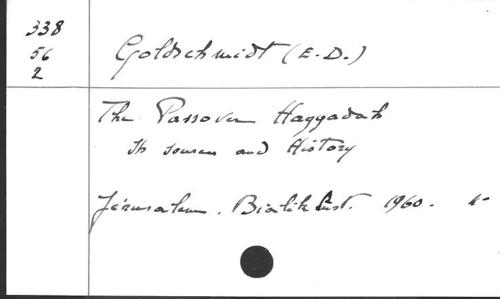 338
56
2
Goldschmidt (E.D.)
The Passover Haggadah
Its sources and History
Jérusalem. Bialik Inst. 1960. 4°